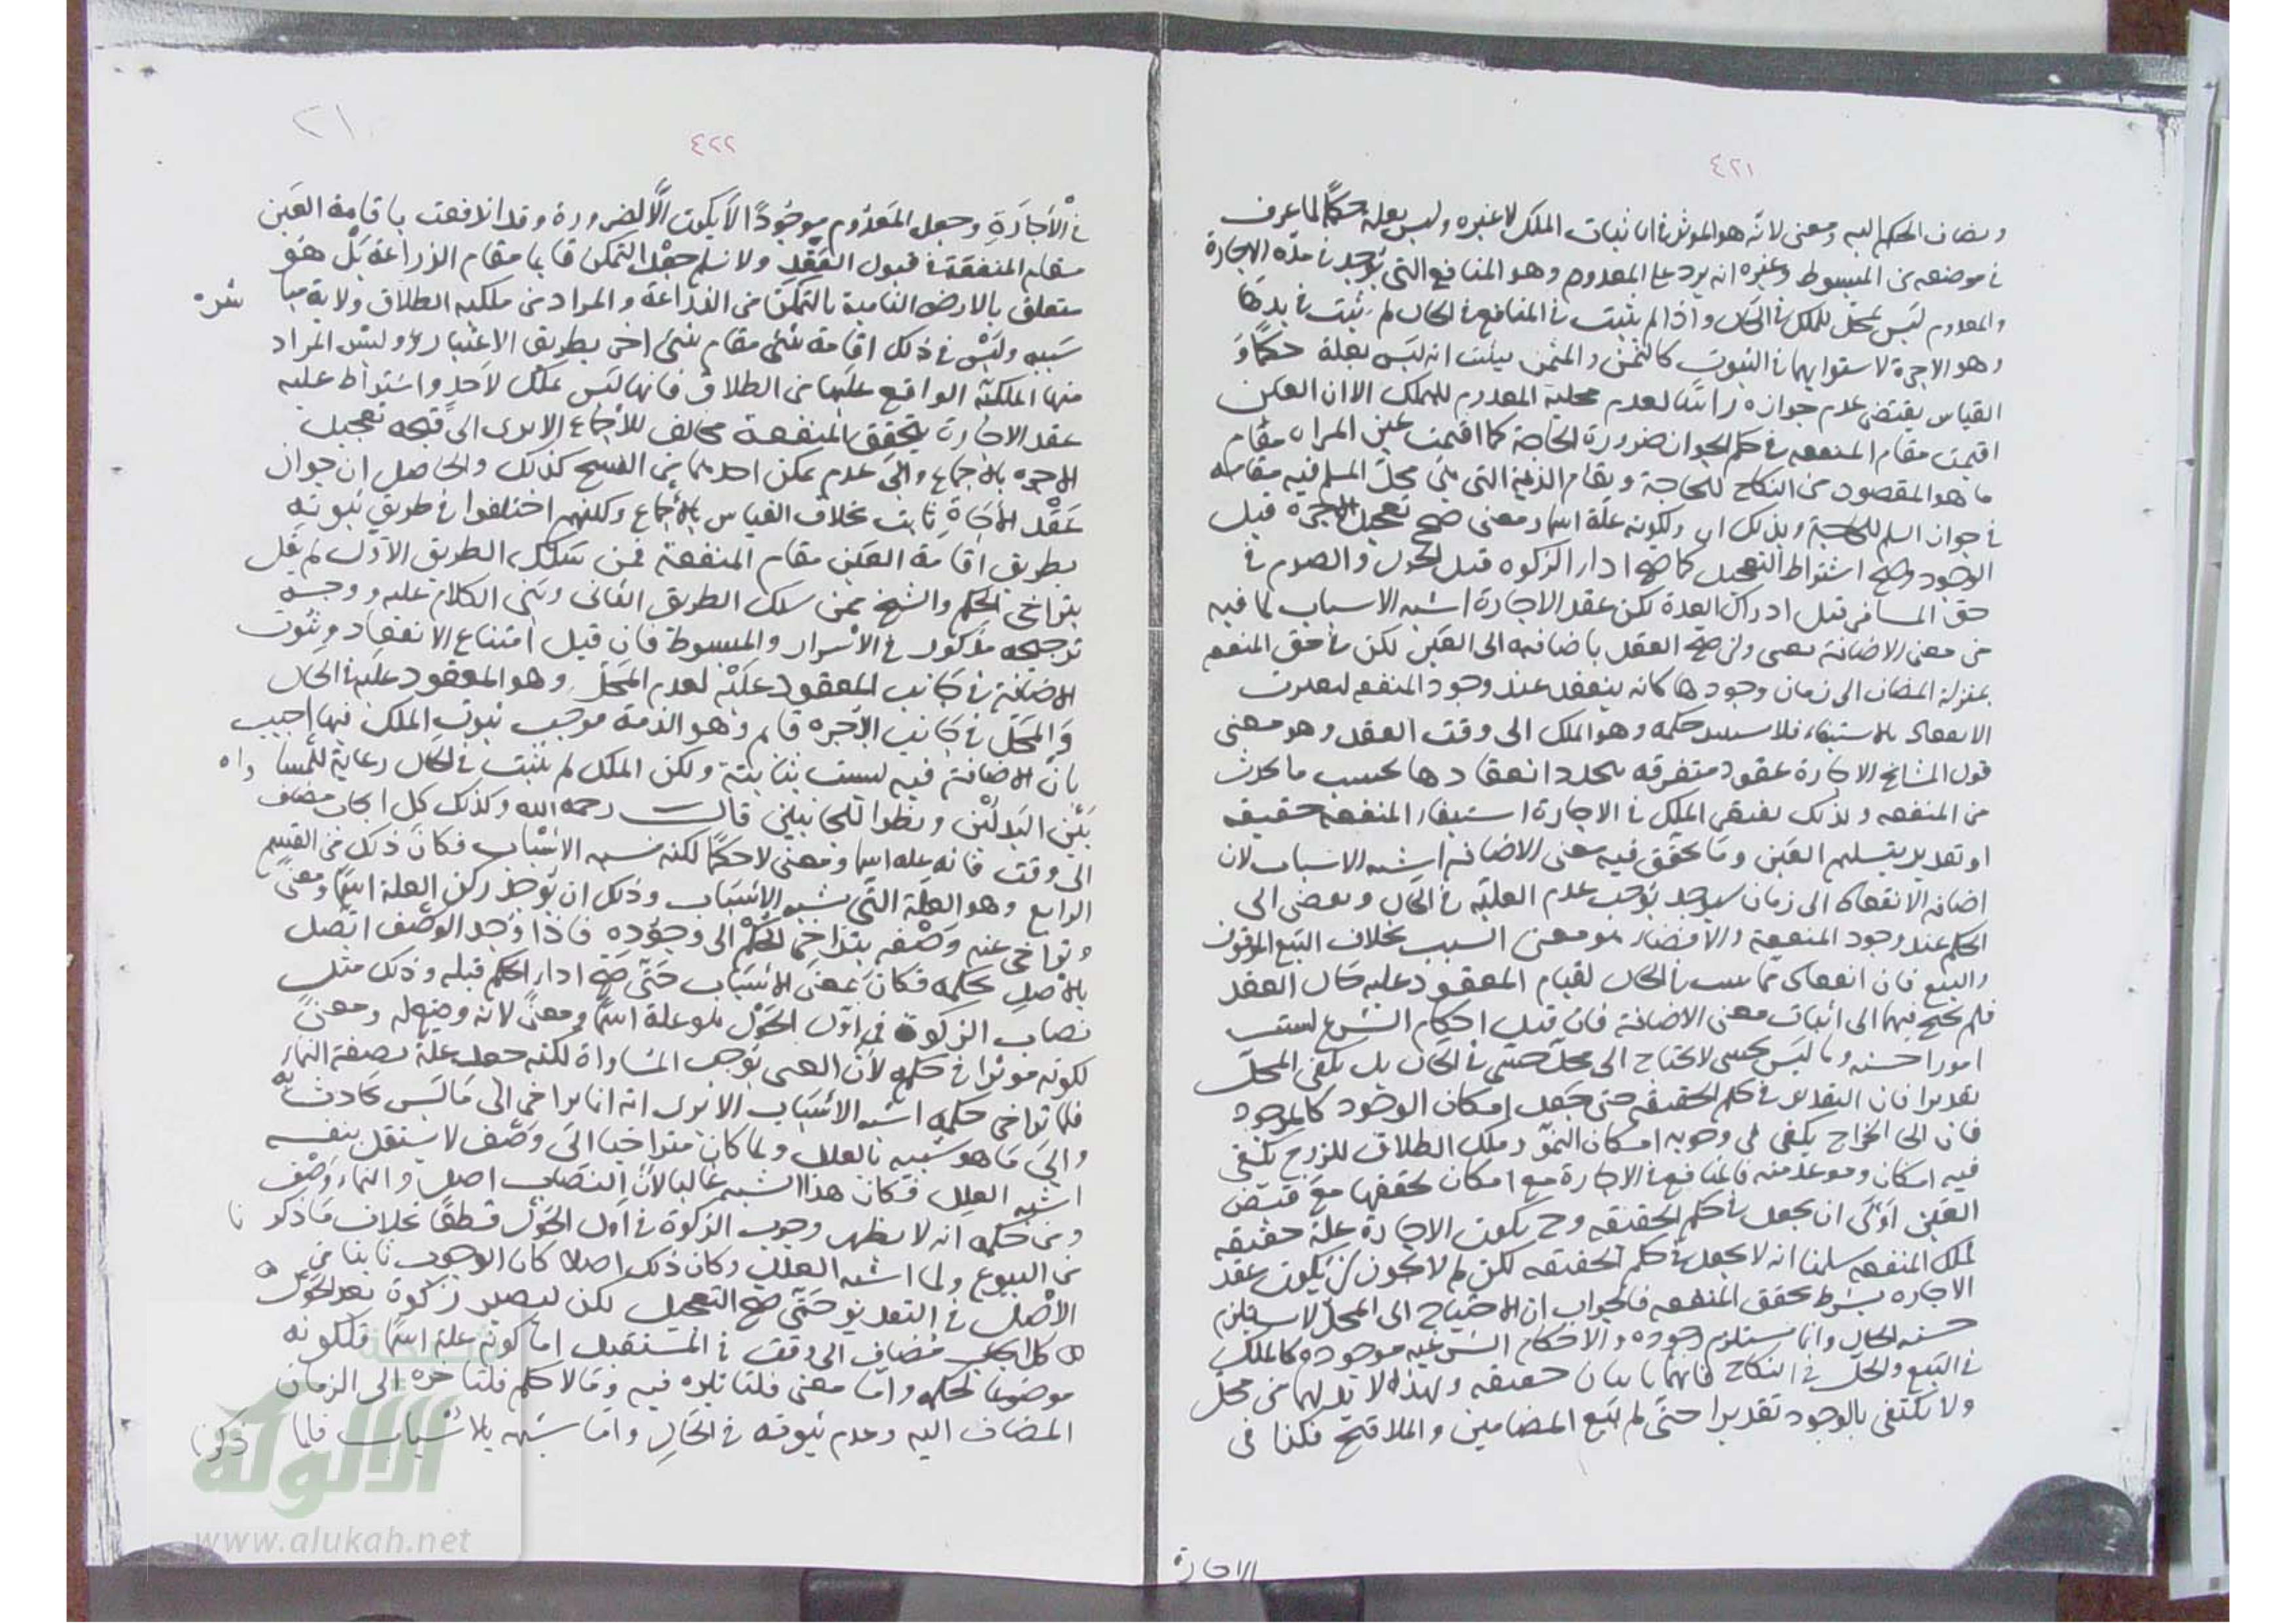 ٤٢١
ويضاف الحكم اليه ومعنى لانه هو الموثر في اثبات الملك لا غيره وليس بعلة حكمًا لما عرف
في موضعه من المبسوط وغيره انه يرد على المعدوم وهو المنافع التي توجد في مدة الاجارة
والمعدوم ليس بمحل للملك في الحال واذا لم يثبت في المنافع في الحال لم يثبت في بدلها
وهو الاجرة لاستوايهما في الثبوت كالثمن والمثمن فيثبت انه ليس بعلة حكمًا و
القياس يقتضى عدم جوازه راسًا لعدم محلية المعدوم للملك الا ان العين
اقيمت مقام المنفعه في حكم الجواز لضرورة الحاجة كما اقيمت عين المراه مقام
ما هو المقصود من النكاح للحاجة ويقام الذمة التي هي محل المسلم فيه مقامه
في جواز السلم للحاجة وبذلك اي ولكونه علة اسما ومعنى صح تعجيل الاجرة قبل
الوجود وصح اشتراط التعجيل كما صح ادا الزكوه قبل الحول والصوم في
حق المسافر قبل ادراك العدة لكن عقد الاجارة اشبه الاسباب لما فيه
من معنى الاضافة يعنى وان صح العقد باضافته الى العين لكن في حق المنفعه
بمنزلة المضاف الى زمان وجودها كانه ينعقد عند وجود المنفعه ليقترن
الانعقاد بالاستيفاء فلا يستند حكمه وهو الملك الى وقت العقد وهو معنى
قول المشايخ الاجارة عقود متفرقه يتجدد انعقادها بحسب ما يحدث
من المنفعه ولذلك يقتضى الملك في الاجارة استيفاء المنفعه حقيقه
او تقديرا بتسليم العين وما تحقق فيه معنى الاضافة اشبه الاسباب لان
اضافة الانعقاد الى زمان سيوجد يوجب عدم العلية في الحال ويفضى الى
الحكم عند وجود المنفعة والافضاء هو معنى السبب بخلاف البيع الموقوف
والبيع فان انعقادهما يثبت في الحال لقيام المعقود عليه حال العقد
فلم يحتج فيهما الى اثبات معنى الاضافة فان قيل احكام الشرع ليست
امورا حسيه وما ليس بحسى لا يحتاج الى محل حسي في الحال بل يكفى المحل
تقديرا فان التقدير في حكم الحقيقه حتى جعل امكان الوجود كالموجود
فان الخراج يكفى في وجوبه امكان النمو وملك الطلاق للزوج يكفى
فيه امكان وموعد منه فالمنافع في الاجارة مع امكان تحققها مع قبض
العين اولى ان يجعل في حكم الحقيقه وح يكون الاجارة علة حقيقه
لملك المنفعه سلمنا انه لا يجعل في حكم الحقيقه لكن لم لا يجوز ان يكون عقد
الاجاره بشرط تحقق المنفعه فالجواب ان الاحتياج الى المحل لا يستلزم
حسية الحال وانما يستلزم وجوده والاحكام الشرعيه موجوده كالملك
في البيع والحل في النكاح فانهما ثابتان حقيقه ولهذا لا بد لهما من محل
ولا يكتفى بالوجود تقديرا حتى لم يبع المضامين والملاقيح فكذا في
الاجارة
٤٢٢
في الاجارة وجعل المعدوم موجودًا لا يكون الا لضرورة وقد اندفعت باقامة العين
مقام المنفعة في قبول العقد ولا نسلم جعل التمكن قايما مقام الزراعة بل هو
متعلق بالارض النامية بالتمكن من الزراعة والمراد من ملكيه الطلاق ولاية مباشرة
سببه وليس في ذلك اقامة شئ مقام شئ اخر بطريق الاعتبار وليس المراد
منها الملكية الواقع عليها من الطلاق فانها ليس بملك لاحد واشتراط عليه
عقد الاجارة بتحقق المنفعة مخالف للاجماع الا يرى الى صحة تعجيل
الاجره بالاجماع والى عدم تمكن احدهما من الفسخ كذلك والحاصل ان جواز
عقد الاجارة ثابت بخلاف القياس بالاجماع ولكنهم اختلفوا في طريق ثبوته
بطريق اقامة العين مقام المنفعة فمن سلك الطريق الاول لم يقل
بتراخى الحكم والشيخ ممن سلك الطريق الثاني وبنى الكلام عليه ووجه
ترجيحه مذكور في الاسرار والمبسوط فان قيل امتناع الانعقاد وثبوت
الاضافة في جانب المعقود عليه لعدم المحل وهو المعقود عليه في الحال
والمحل في جانب الاجره قايم وهو الذمة موجب ثبوت الملك فيها اجيب
بان الاضافة فيه ليست بثابتة ولكن الملك لم يثبت في الحال رعاية للمساواه
بين البدلين ونظرا للجانبين قال رحمه الله وكذلك كل ايجاب مضاف
الى وقت فانه علة اسما ومعنى لا حكمًا لكنه يشبه الاسباب فكان ذلك من القسم
الرابع وهو العلة التي تشبه الاسباب وذلك ان يوجد ركن العلة اسمًا ومعنى
وتراخى عنه وصفه يتراخى الحكم الى وجوده فاذا وجد الوصف اتصل
بالاصل بحكمه فكان بمعنى الاسباب حتى صح ادا الحكم قبله وذلك مثل
نصاب الزكوة في اول الحول هو علة اسمًا ومعنًى لانه وضع له ومعنًى
لكونه موثرا في حكمه لان الغنى يوجب المساواة لكنه جعل علة بصفة النماء
فلما تراخى حكمه اشبه الاسباب الا يرى انه انما يراخى الى ما ليس بحادث به
والى ما هو شبيه بالعلل ولما كان متراخيا الى وصف لا يستقل بنفسه
اشبه العلل فكان هذا الشبه غالبا لان النصاب اصل والنماء وصف
ومن حكمه انه لا يظهر وجوب الزكوة في اول الحول قطعًا بخلاف ما ذكرنا
من البيوع ولما اشبه العلل وكان ذلك اصلا كان الوجوب ثابتا من
الاصل في التقدير حتى صح التعجيل لكن ليصير زكوة بعد الحول
كل ايجاب مضاف الى وقت في المستقبل اما كونه علة اسمًا فلكونه
موضوعا لحكمه واما معنى فلتاثيره فيه واما لا حكم فلتاخره الى الزمان
المضاف اليه وعدم ثبوته في الحال واما شبهه بالاسباب فلما ذكرنا
الألوكة
www.alukah.net